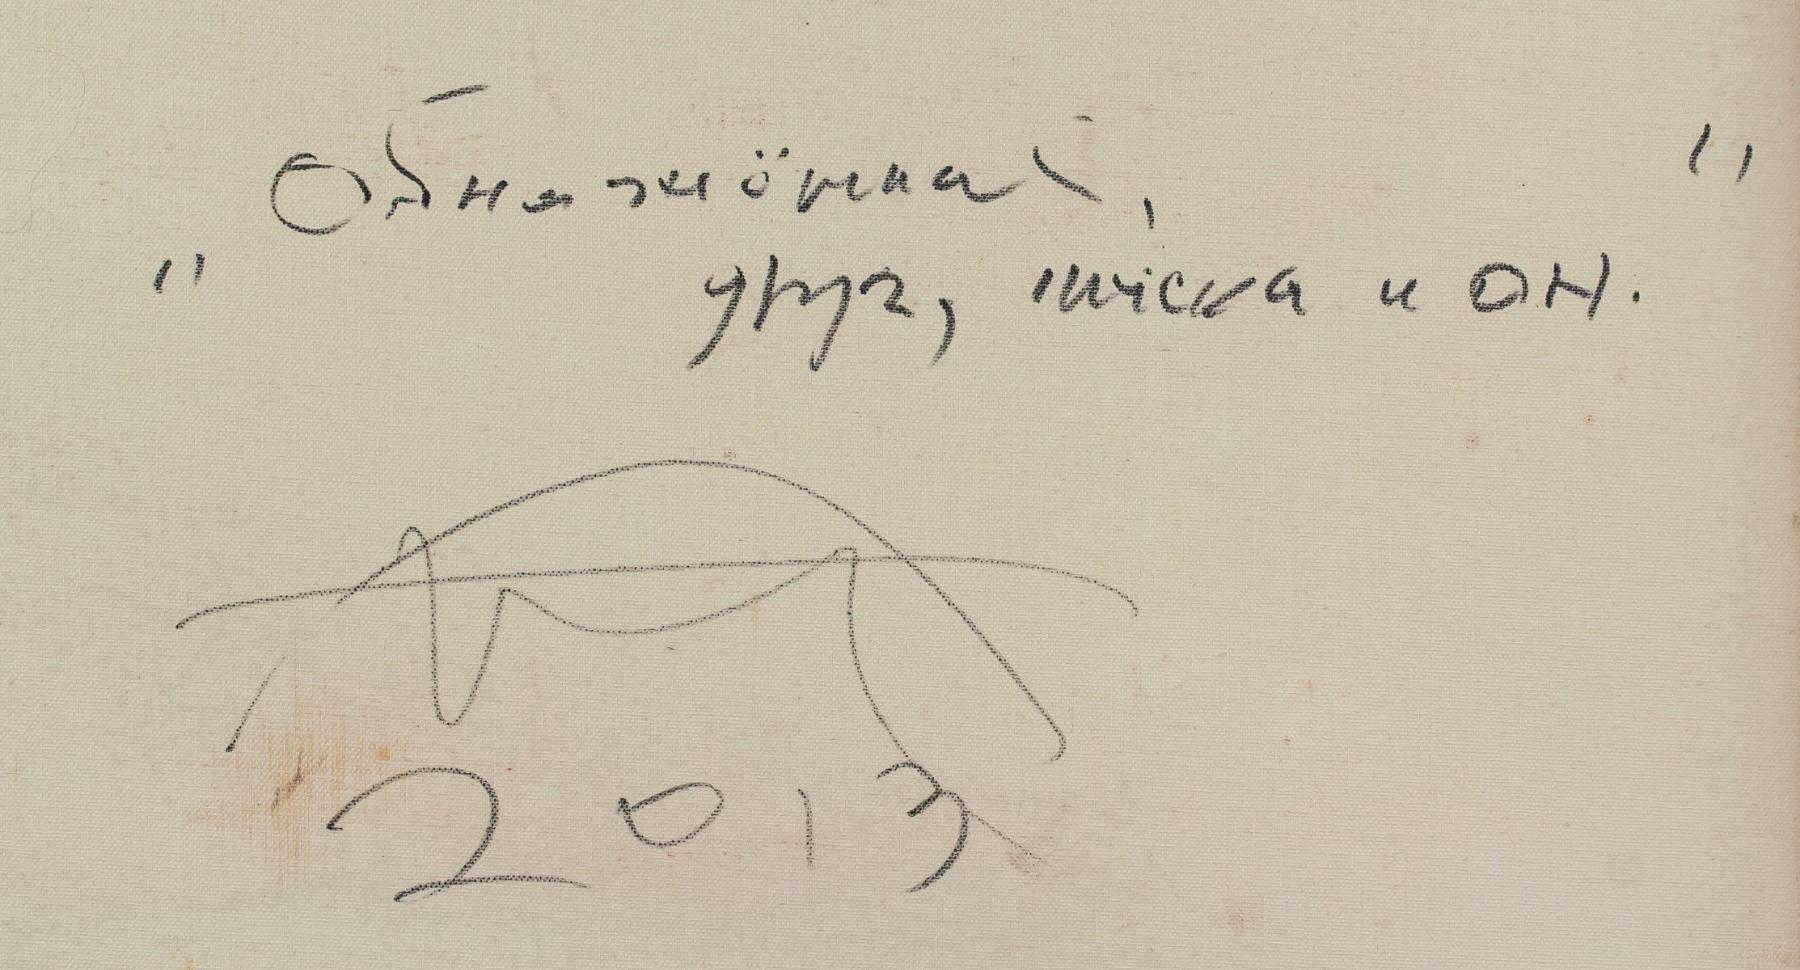 "Обнажённая,
друг, миска и ОН."
2013